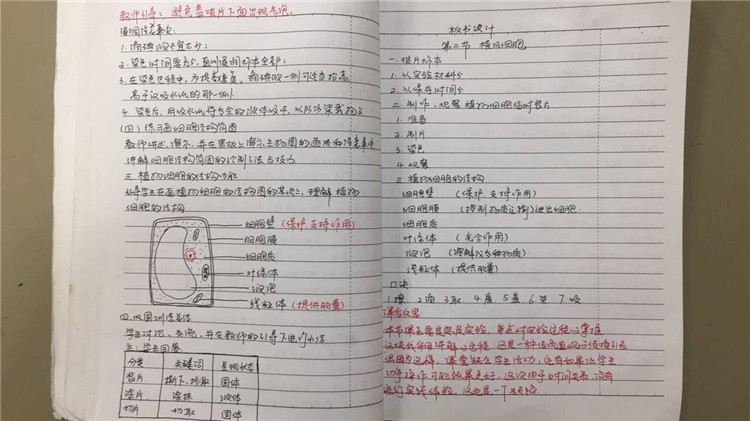 教师引导：避免盖玻片下面出现气泡。
强调注意事项：
1. 滴碘液不宜太少；
2. 染色时间要充分，直到浸润标本全部；
3. 在染色过程中，为提高速度，滴碘液一侧可适当抬高，
离子吸水纸的那一侧
4. 染色后，用吸水纸将多余的液体吸干，以防污染载物台
(四) 练习画细胞结构简图
教师讲述、演示，并在黑板上演示生物图的画法和注意事项
讲解细胞结构简图的绘制方法与技巧
三 植物细胞的结构功能
引导学生在画植物细胞的结构图的基础上，理解植物
细胞的结构
细胞壁 (保护 支持作用)
细胞膜
细胞质
叶绿体
液泡
线粒体 (提供能量)
四.巩固训练总结
学生讨论、交流，并在教师的引导下进行小结
生：学生回答
分类 关键词 呈现状态
装片 撕下、挑取 固体
涂片 涂抹 液体
切片 切取 固体
板书设计
第二节 植物细胞
一 玻片标本
1. 以实验材料分
2. 以保存时间分
二 制作、观察植物细胞临时装片
1. 准备
2. 制片
3. 染色
4. 观察
三 植物细胞的结构
细胞壁 (保护 支持作用)
细胞膜 (控制物质)进出细胞.
细胞质
叶绿体 (光合作用)
液泡 (溶解以多种物质)
线粒体 (提供能量)
口诀
1擦 2滴 3取 4展 5盖 6染 7吸
课后反思
本节课主要是做实验，重点对实验过程的掌握
这块我用讲解
这是一种
也因为这样，课堂缺乏学生活动，还有如果让学生
动手操作可能效果更好，这次由于时间关系，没有
进行实践体验，这也是一个缺陷.